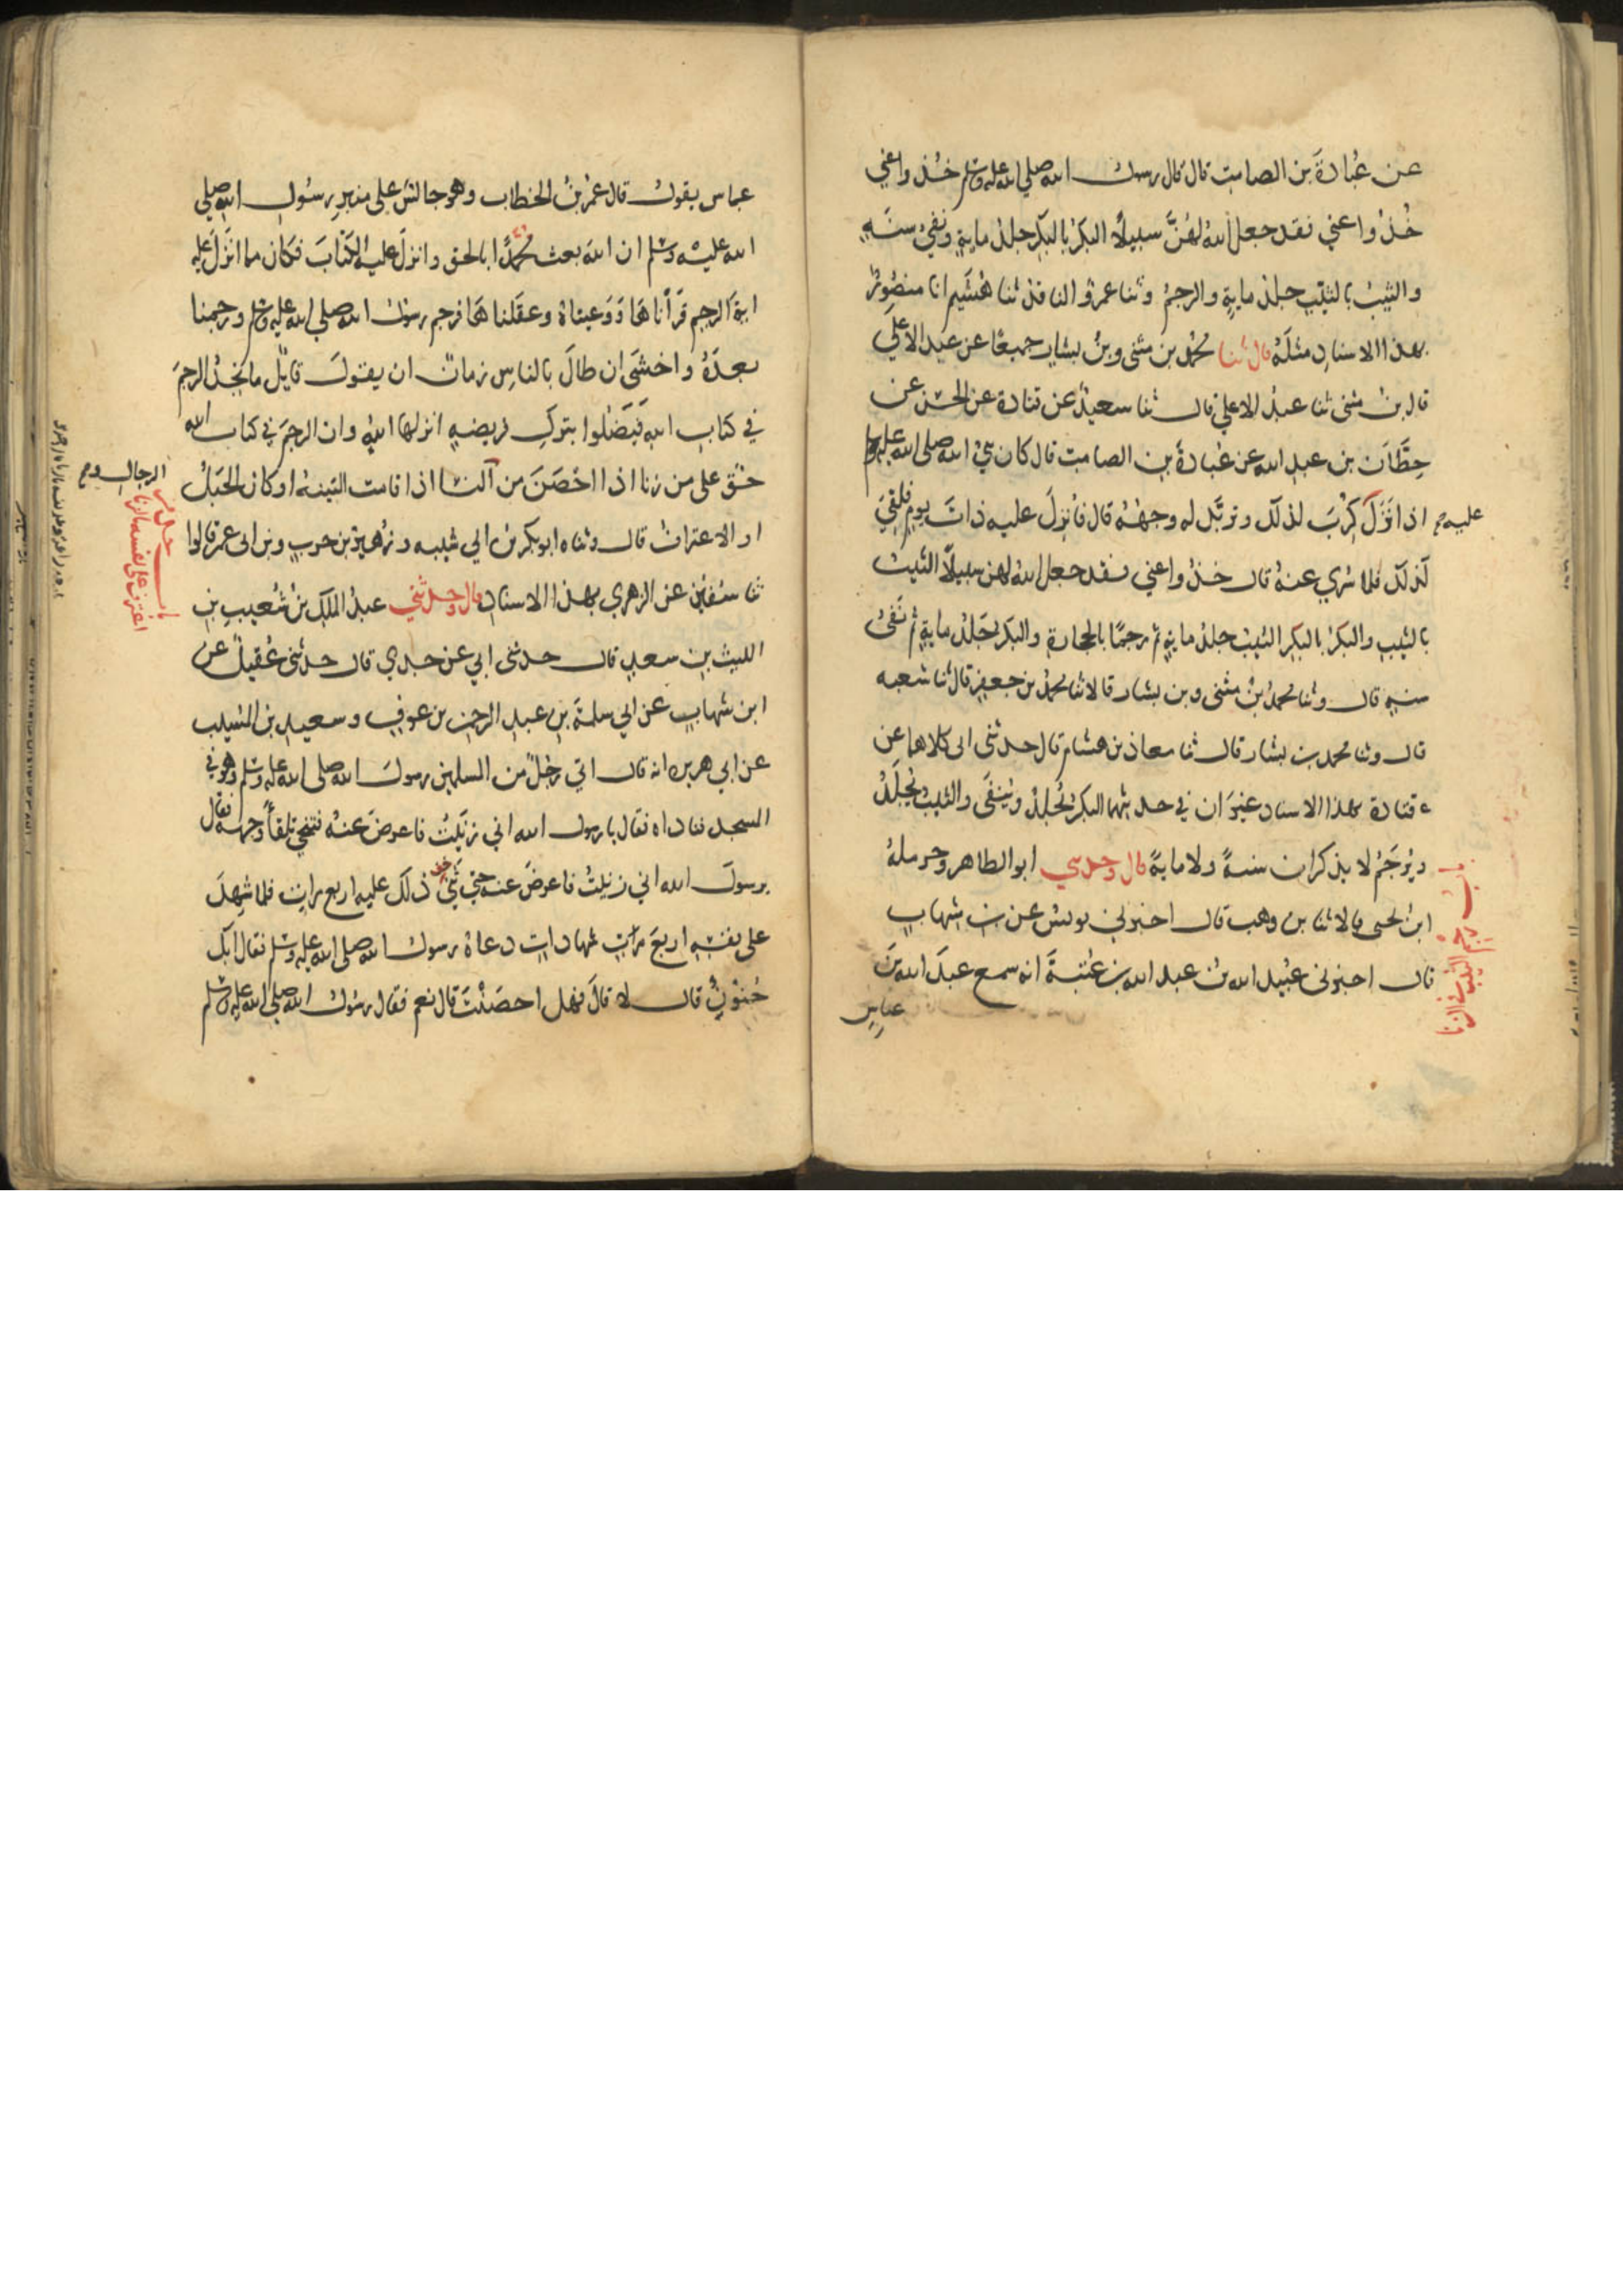 عن عُبادةَ بن الصامتِ قال قال رسول الله صلى الله عليه وسلم خُذواعني
خُذُواعني فقد جعل اللهُ لهُنَّ سبيلاً البكرُ بالبكرِ جلدُ مايةٍ ونفيُ سنةٍ
والثيبُ بالثيبِ جلدُ مايةٍ والرجمُ وثنا عمرو الناقدُ ثنا هُشَيم انا منصُورٌ
بهذا الاسنادِ مثلَهُ قال ثنا محمدُ بن مثنى وبنُ بشارٍ جميعًا عن عبد الأعلى
قال بنُ مثنى ثنا عبدُ الاعلى قال ثنا سعيدٌ عن قتادة عن الحسن عن
حِطَّانَ بن عبدِ الله عن عُبادةَ بن الصامت قال كان نبيُّ الله صلى الله عليه وسلم
اذا نَزَلَ كُرِبَ لذلك وتربَّد له وجهُهُ قال فأُنزِلَ عليه ذاتَ يومٍ فلُقِيَ
عليه صح
كذلك فلما سُري عنهُ قال خذُواعني فقد جعل اللهُ لهن سبيلاً الثيبُ
بالثيبِ والبكرُ بالبكرِ الثيبُ جلدُ مايةٍ ثم رجمًا بالحجارةِ والبكرُ جَلدُ مايةٍ ثم نَفىُ
سنةٍ قال وثنا محمدُ بنُ مثنى وبن بشار قالا ثنا محمدُ بن جعفرٍ قال ثنا شعبه
قال وثنا محمد بن بشار قال ثنا معاذ بن هشام قال حدثنى ابى كلاهما عن
قتادة بهذا الاسناد غيرَ ان في حديثهما البكرُ يُجلدُ ويُنفَى والثيبُ يُجلَدُ
ويُرجَمُ لا يذكران سنةً ولا مايةً قال وحدثنى ابو الطاهر وحرملهُ
باب رجم الثيب في الزنا
ابنُ يحيى قالا ثنا بن وهب قال اخبرنى يونس عن بن شهابٍ
قال اخبرنى عُبيد الله بنُ عبد الله بن عُتبةَ انه سمع عبدَ الله بنَ
عباسٍ
عباس يقولُ قال عُمرُ بنُ الخطاب وهو جالسٌ على منبرِ رسُولِ الله صلى
الله عليه وسلم ان الله بعث محمدًا بالحق وانزلَ عليه الكتابَ فكان مما انزَلَ عليه
ايةُ الرجم قرأناها ووَعيناهُ وعقلناها فرجم رسولُ الله صلى الله عليه وسلم ورجمنا
بعدَهُ واخشَى ان طالَ بالناسِ زمانٌ ان يقولَ قايلٌ ما نجدُ الرجمَ
في كتابِ اللهِ فيَضلُوا بتركِ فريضهٍ انزلها اللهُ وان الرجمَ في كتاب الله
حقٌّ على من زنا اذا احْصَنَ من النسا اذا قامت البينهُ او كان الحَبَلُ
الرجال و صح
او الاعترافُ قال وثناه ابو بكر بنُ ابي شيبه وزُهيرُ بن حربٍ وبن ابى عمر قالوا
ثنا سُفيانُ عن الزهري بهذا الاسنادِ قال وحدثني عبدُ الملك بن شُعيبِ بنِ
باب حد من اعترف على نفسه بالزنا
الليثِ بن سعدٍ قال حدثنى ابي عن جدي قال حدثنى عُقيلٌ عن
ابن شهابٍ عن ابي سلمةَ بنِ عبدِ الرحمن بن عوفٍ وسعيدِ بن المسيب
عن ابي هريره انه قال اتي رجُلٌ من المسلمين رسولَ الله صلى الله عليه وسلم وهو في
المسجد فناداه فقال يا رسول الله اني زنَيتُ فاعرضَ عنهُ فتنحى تلقاَ وجهه فقال
يرسولَ الله اني زنيتُ فاعرضَ عنه حتى ثَنَّى ذلك عليه اربع مراتٍ فلما شهِدَ
على نفسِهِ اربعَ مراتٍ شهاداتٍ دعاهُ رسولُ الله صلى الله عليه وسلم فقال ابك
جُنُونٌ قال لا قالَ فهل احصَنْتَ قال نعم فقال رسُولُ الله صلى الله عليه وسلم